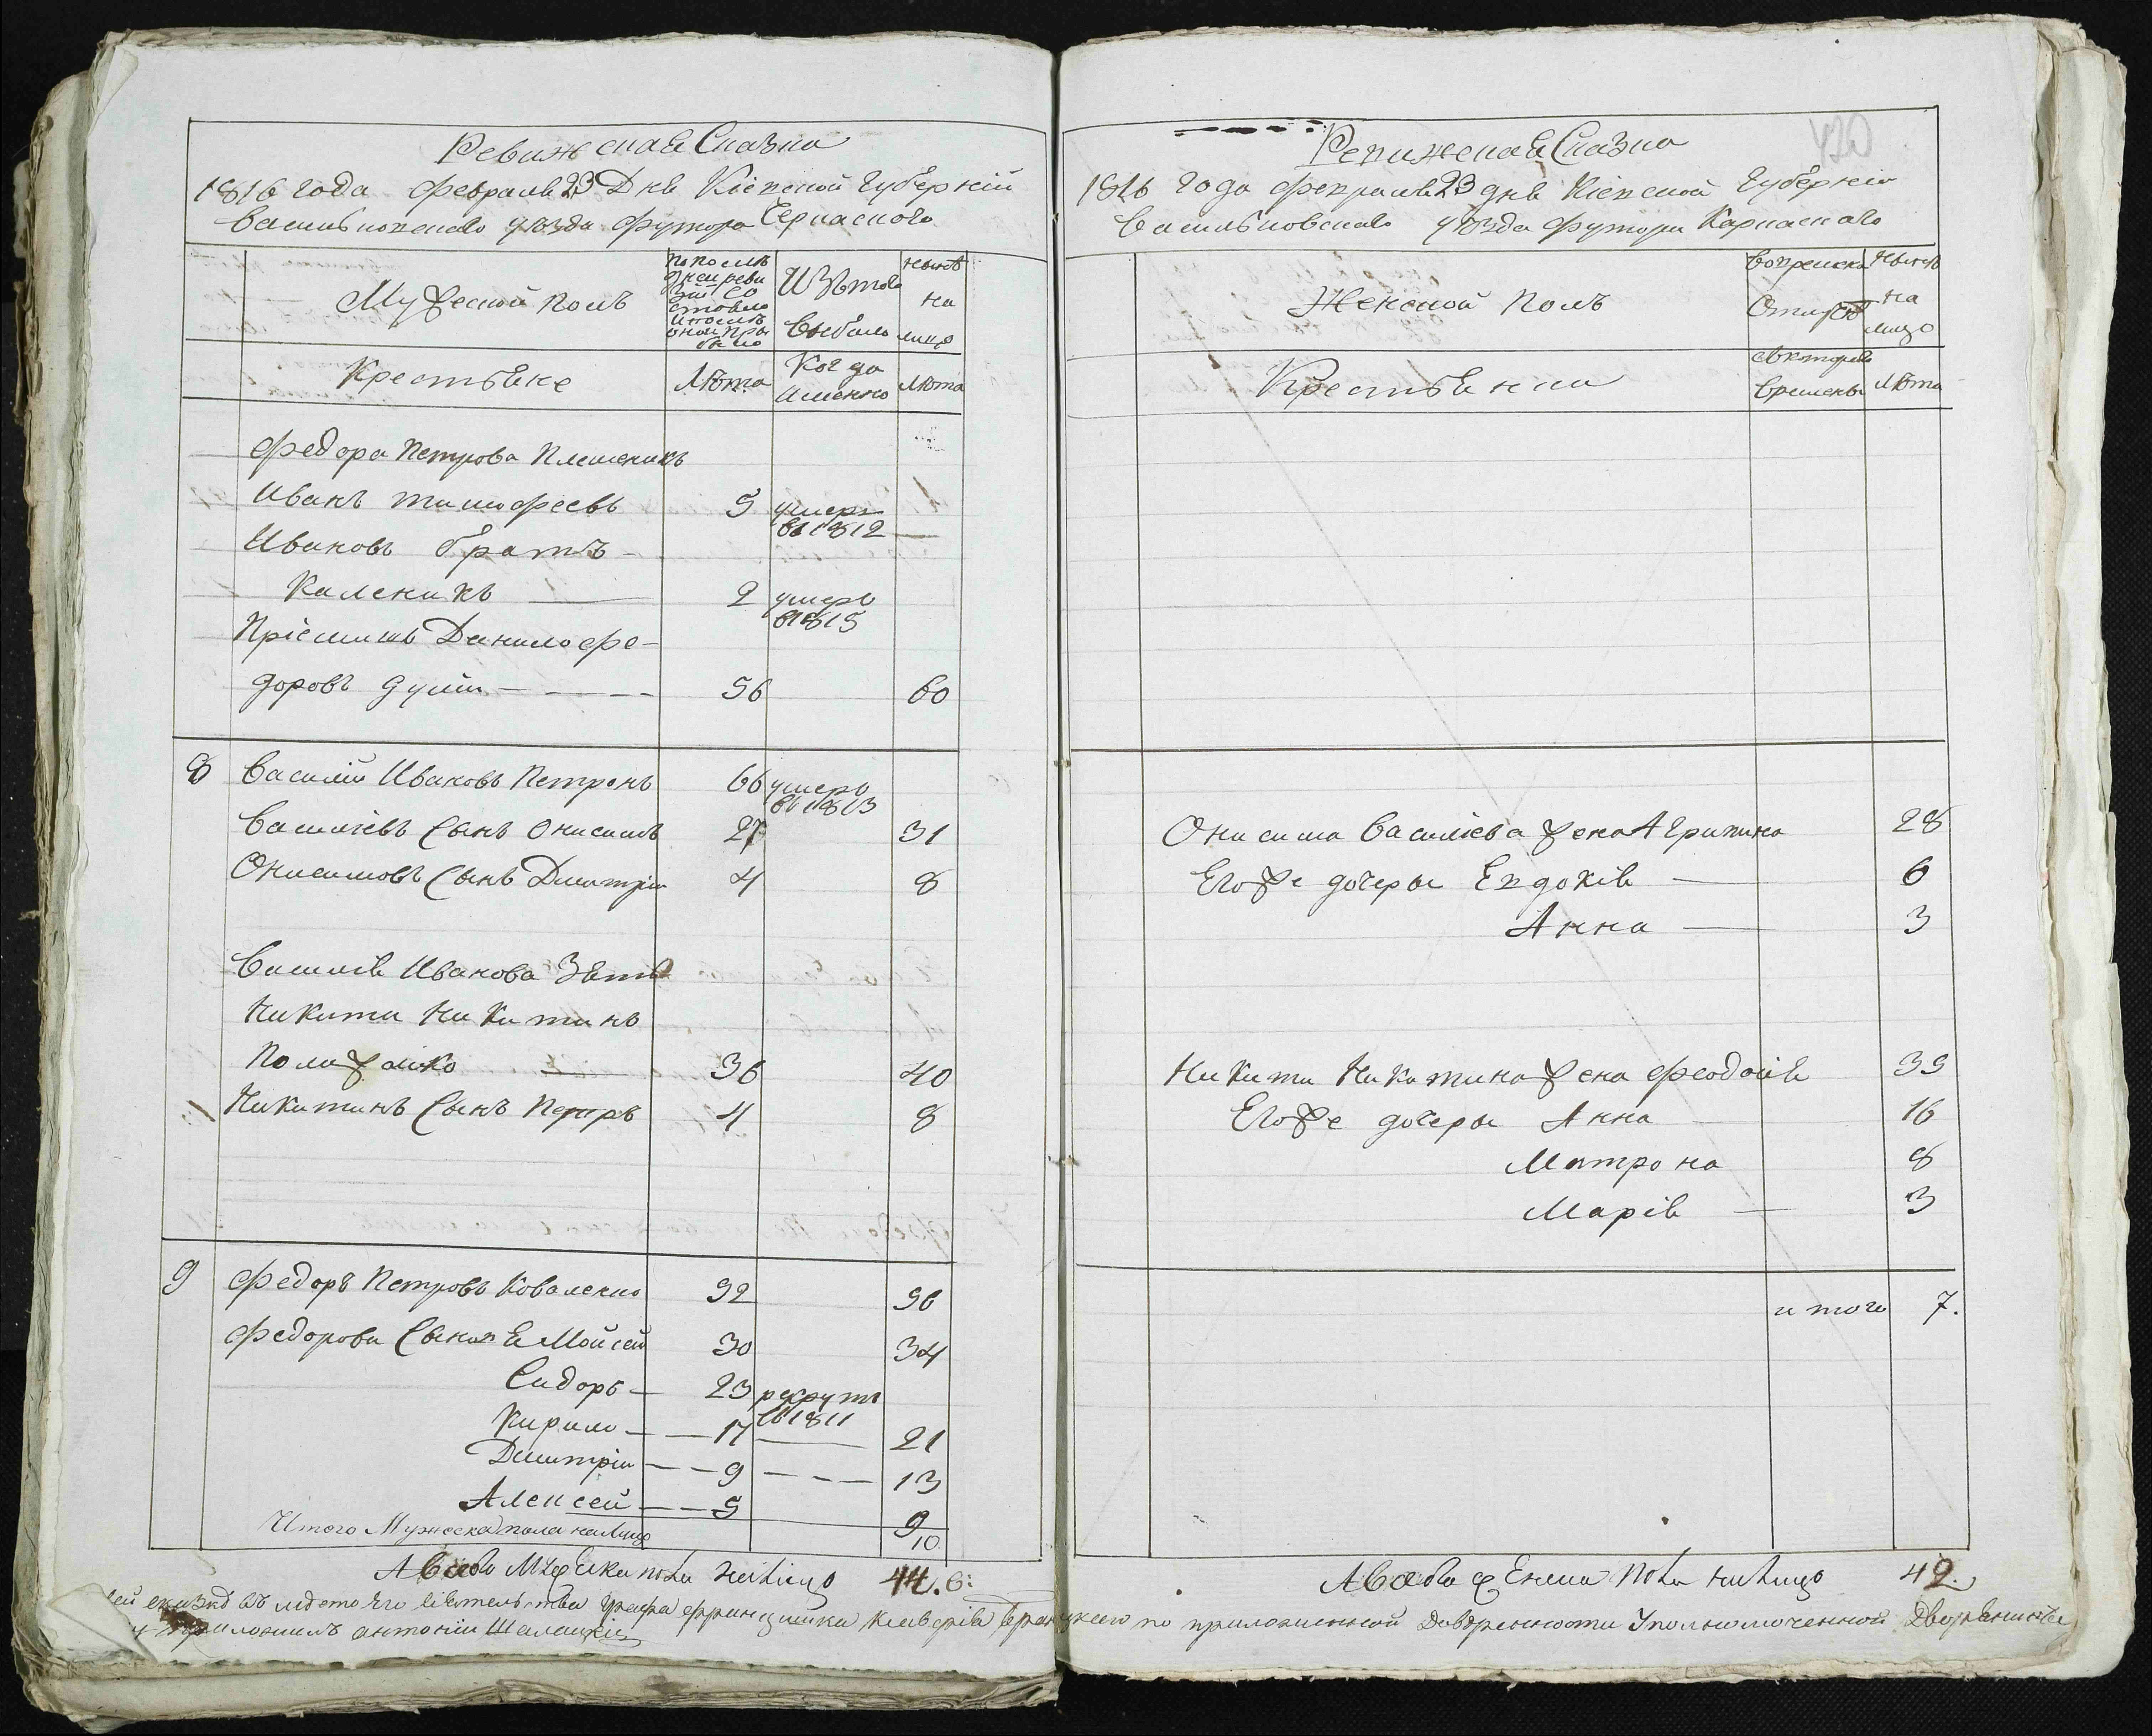 Ревижская Сказка
1816 года февраля 23 Дня Кіевской Губерній
Васильковского уѣзда футора Черкаского
Мужеской полъ
По последней ревизіи состояло и после оной прыбыло
Изъ того выбыло
ныне на лицо
Крестьяне
Лѣта
Когда именно
Лѣта
Федора Петрова Племеникъ
Иванъ Тимофеевъ 5 умеръ въ 1812 —
Ивановъ братъ
Каленикъ — 2 умеръ в 1815
Пріемишъ Данило Фе-
доровъ — — — 56 60
8 Василій Ивановъ Петренъ 66 умеръ въ 1813
Васильевъ Сынъ Онисимъ 27 31
Онисимовъ Сынъ Дмитрій 4 8
Василія Иванова Зять
Никита Никитинъ
— 36 40
Никитинъ Сынъ Петръ 4 8
9 Федоръ Петровъ Коваленко 92 96
Федорови Сыновя Мойсей 30 34
Сидоръ — 23 рекрутъ въ 1811
Кирило — — 17 — 21
Дмитрій — — 9 — — — 13
Алексей — — 5 9
Итого Мужеска пола налицо 10
А Всего Мужеска пола налицо 44. 6:
420
Ревижская Сказка
1816 года февраля 23 дня Кіевской Губерніи
Васильковского уѣзда футора Каркаского
Женской полъ
Во временной отлучке
Ныне на лицо
Крестьянки
Съ которого времены
Лѣта
Онисима Василіева жена Агрипина 28
Его же дочеры Евдокія — 6
Анна — 3
Никиты Никитина жена Феодосія 39
Его же дочеры Анна — 16
Матрона 8
Марія — 3
итого 7.
А Всего Женска пола налицо 42.
графа Францишка Ксаверія Браницкого по приложенной Доверенности Уполномоченной Дворянинъ
приложилъ Антоній